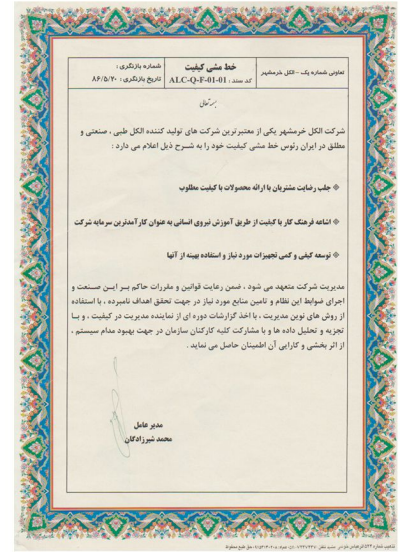 تعاونی شماره یک - الکل خرمشهر
خط مشی کیفیت
کد سند : ALC-Q-F-01-01
شماره بازنگری :
تاریخ بازنگری : ۸۶/۵/۲۰
بسمه تعالی
شرکت الکل خرمشهر یکی از معتبرترین شرکت های تولید کننده الکل طبی ، صنعتی و
مطلق در ایران رئوس خط مشی کیفیت خود را به شـرح ذیل اعلام می دارد :
جلب رضایت مشتریان با ارائه محصولات با کیفیت مطلوب
اشاعه فرهنگ کار با کیفیت از طریق آموزش نیروی انسانی به عنوان کارآمدترین سرمایه شرکت
توسعه کیفی و کمی تجهیزات مورد نیاز و استفاده بهینه از آنها
مدیریت شرکت متعهد می شود ، ضمن رعایت قوانین و مقررات حاکم بـر ایـن صـنعت و
اجرای ضوابط این نظام و تامین منابع مورد نیاز در جهت تحقق اهداف نامبرده ، با استفاده
از روش های نوین مدیریت ، با اخذ گزارشات دوره ای از نماینده مدیریت در کیفیت ، و بـا
تجزیه و تحلیل داده ها و با مشارکت کلیه کارکنان سازمان در جهت بهبود مدام سیستم ،
از اثر بخشی و کارایی آن اطمینان حاصل می نماید .
مدیر عامل
محمد شیرزادگان